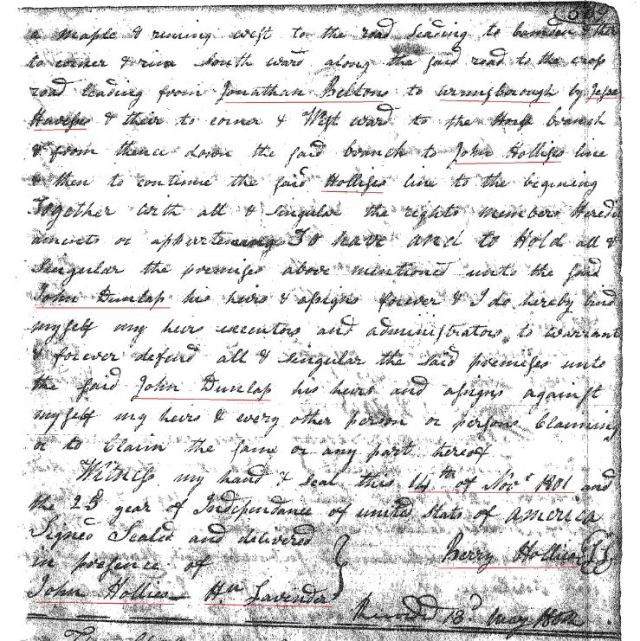 a maple & runing west to the road leading to Camden & then
to corner & run South ward along the said road to the cross
road leading from Jonathan Beltons to Winnsborough by Jesse
Haveses & their to corner & West ward to the branch
& from thence down the said branch to John Hollises line
& then to continue the said Hollises line to the begining
Together with all & singular the rights members Heredit
aments or appurtenances To have and to Hold all &
Singular the premises above mentioned unto the said
John Dunlap his heirs & assigns forever & I do hereby bind
myself my heirs executors and administrators to warrant
& forever defend all & singular the said premises unto
the said John Dunlap his heirs and assigns against
myself my heirs & every other person or persons Claiming
or to Claim the same or any part hereof
Witness my hand & seal this 14th of Novr 1801 and
the 25 year of Independance of united Stats of America
Signed Sealed and delivered
in presence of
Berry Hollies
John Hollies Hn Lavender
18d May